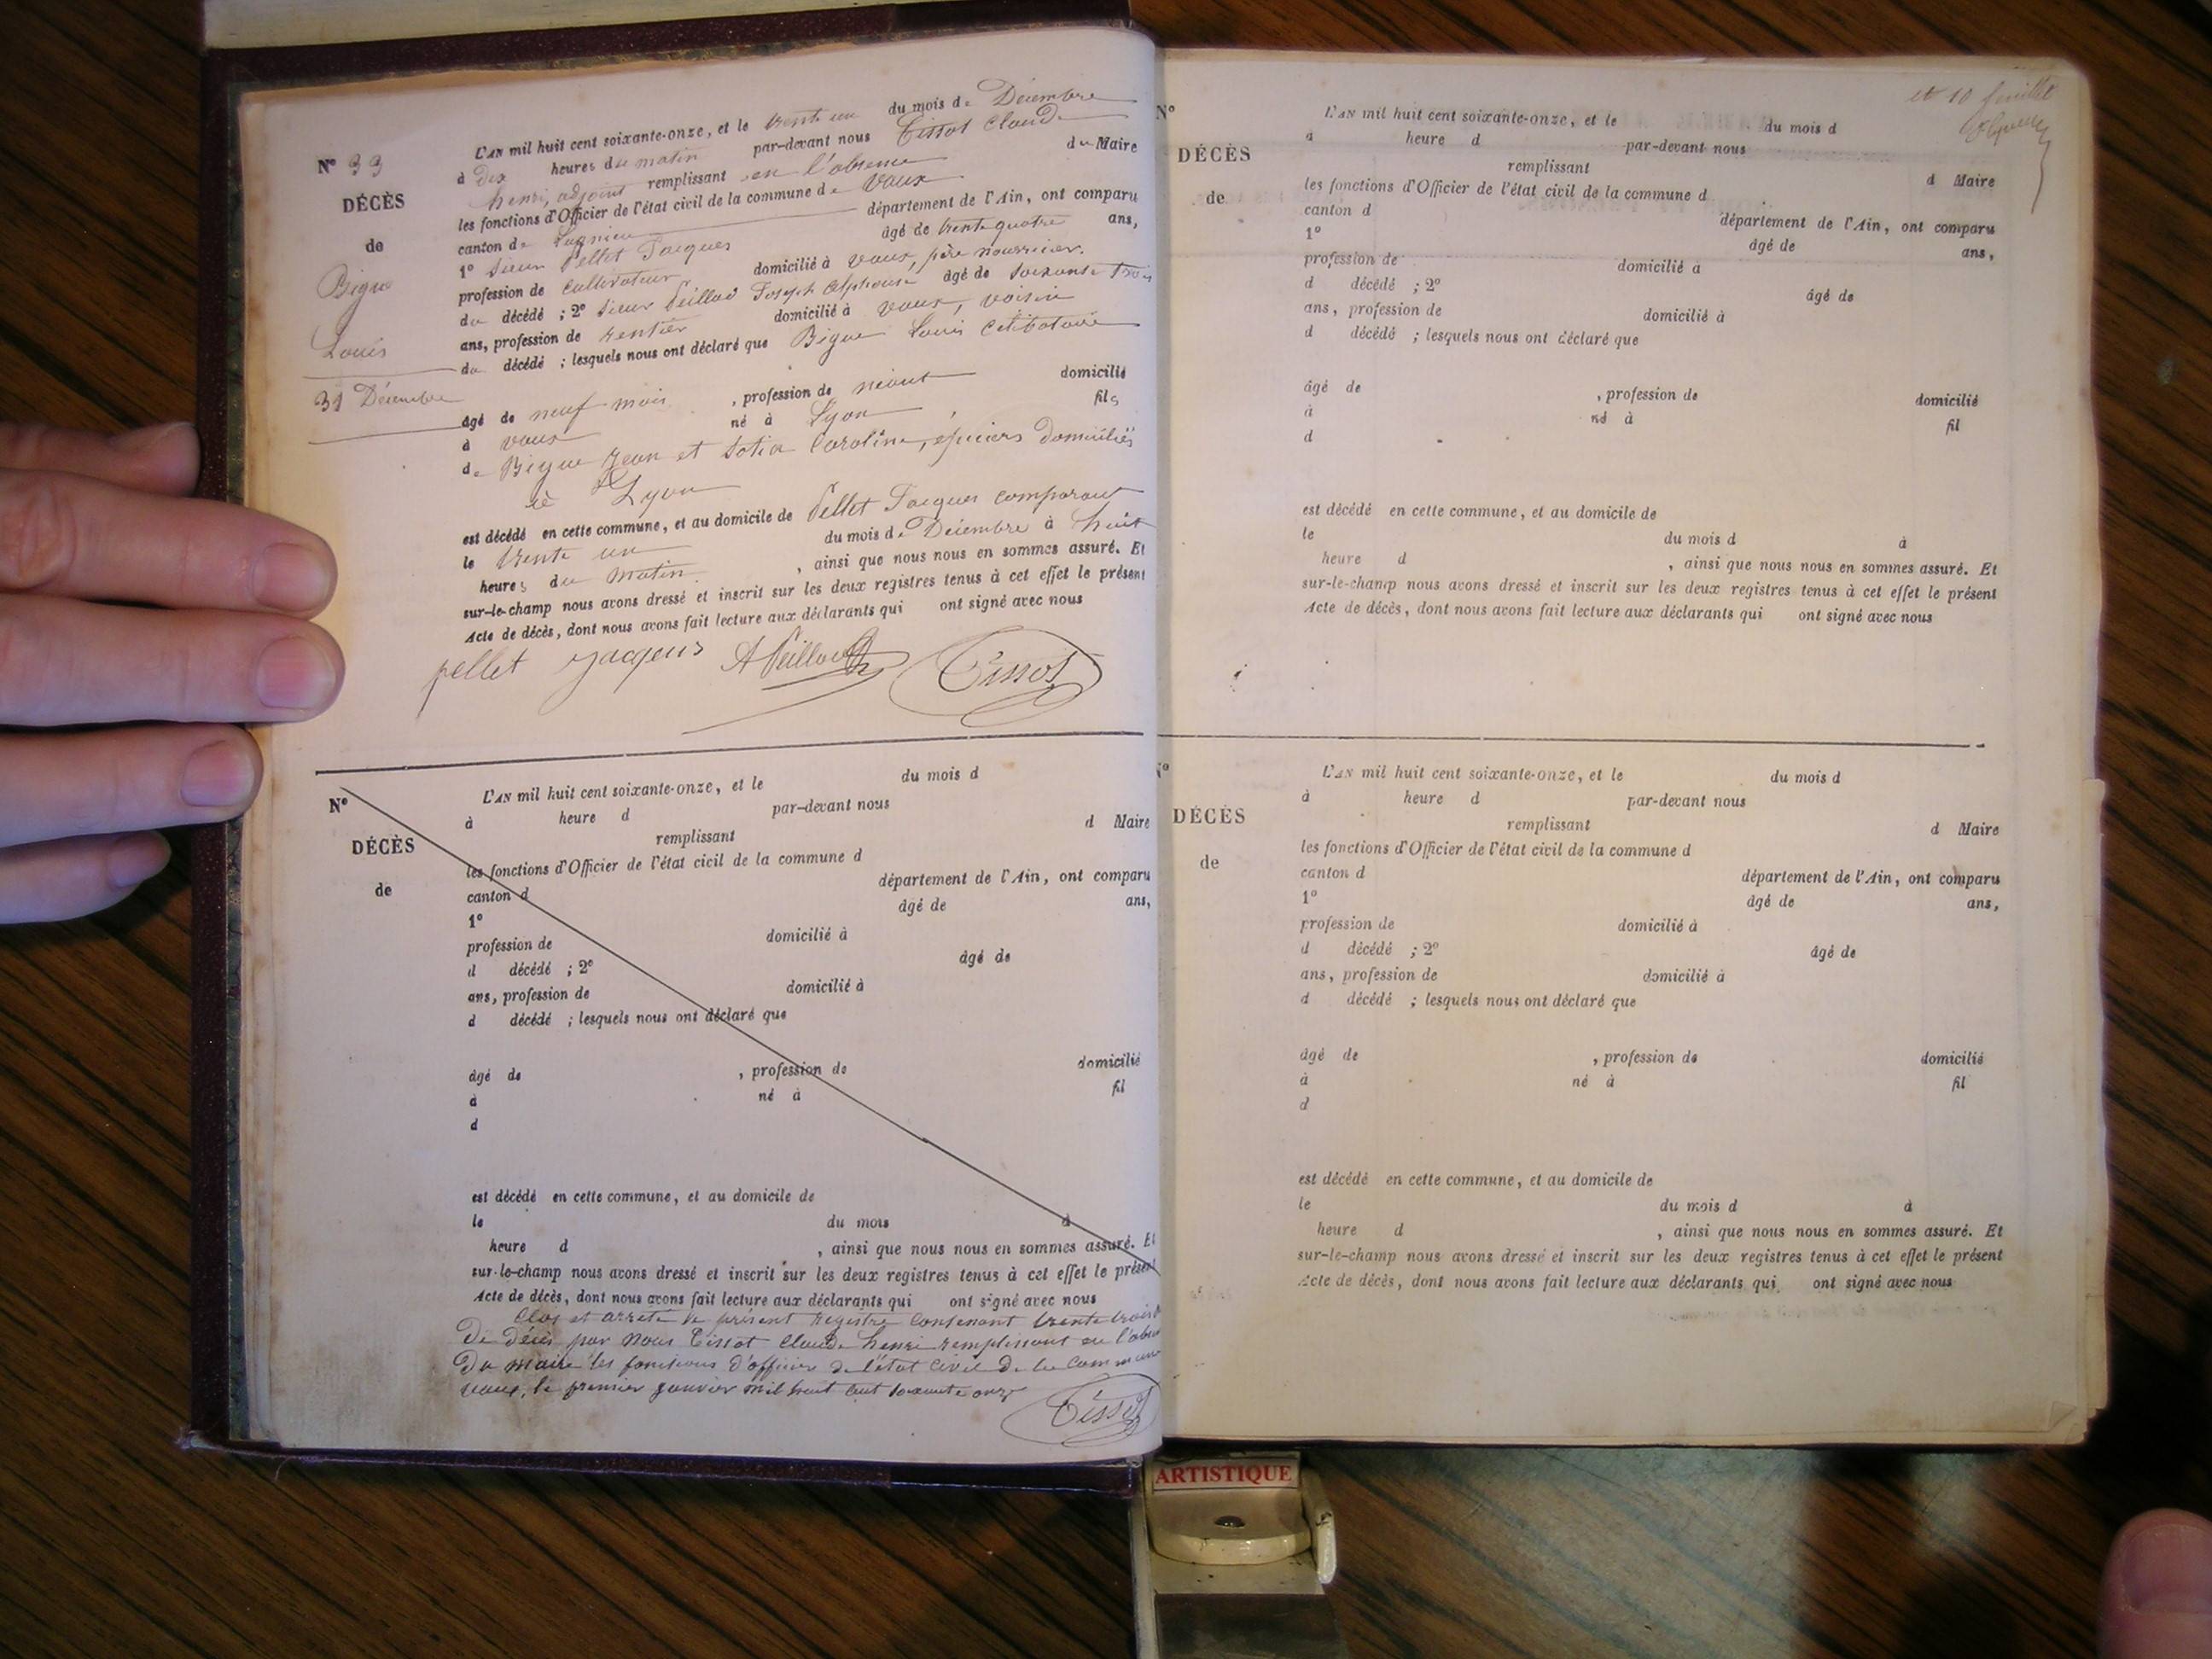 N° 33
DÉCÈS
de
Bigue
Louis
31 Décembre
L'AN mil huit cent soixante-onze, et le trente un du mois de Décembre
à Dix heures du matin par-devant nous Tissot Claude
henri, adjoint remplissant en l'absence du Maire
les fonctions d'Officier de l'état civil de la commune de Vaux
canton de Lagnieu département de l'Ain, ont comparu
1° Sieur Pellet Jacques âgé de trente quatre ans,
profession de cultivateur domicilié à Vaux, père nourricier.
du décédé ; 2° Sieur Peillod Joseph Alphonse âgé de soixante trois
ans, profession de rentier domicilié à Vaux, voisin
du décédé ; lesquels nous ont déclaré que Bigue Louis célibataire
âgé de neuf mois , profession de néant domicilié
à Vaux né à Lyon fils
de Bigue Jean et Caroline, épiciers domiciliés
à Lyon
est décédé en cette commune, et au domicile de Pellet Jacques comparant
le trente un du mois de Décembre à huit
heures du matin , ainsi que nous nous en sommes assuré. Et
sur-le-champ nous avons dressé et inscrit sur les deux registres tenus à cet effet le présent
Acte de décès, dont nous avons fait lecture aux déclarants qui ont signé avec nous
pellet jacques A Peillod Tissot
N°
DÉCÈS
de
L'AN mil huit cent soixante-onze, et le du mois d
à heure d par-devant nous
remplissant d Maire
les fonctions d'Officier de l'état civil de la commune d
canton d département de l'Ain, ont comparu
1° âgé de ans,
profession de domicilié à
d décédé ; 2° âgé de
ans, profession de domicilié à
d décédé ; lesquels nous ont déclaré que
âgé de , profession de domicilié
à né à fil
d
est décédé en cette commune, et au domicile de
le du mois d
heure d , ainsi que nous nous en sommes assuré. Et
sur-le-champ nous avons dressé et inscrit sur les deux registres tenus à cet effet le présent
Acte de décès, dont nous avons fait lecture aux déclarants qui ont signé avec nous
Clos et arrêté le présent registre contenant trente trois
de décès par nous Tissot Claude henri remplissant en
du maire les fonctions d'officier de l'état civil de la commune
Vaux, le premier janvier mil huit cent soixante onze
Tissot
et 10 feuillet
N°
DÉCÈS
de
L'AN mil huit cent soixante-onze, et le du mois d
à heure d par-devant nous
remplissant d Maire
les fonctions d'Officier de l'état civil de la commune d
canton d département de l'Ain, ont comparu
1° âgé de ans,
profession de domicilié à
d décédé ; 2° âgé de
ans, profession de domicilié à
d décédé ; lesquels nous ont déclaré que
âgé de , profession de domicilié
à né à fil
d
est décédé en cette commune, et au domicile de
le du mois d à
heure d , ainsi que nous nous en sommes assuré. Et
sur-le-champ nous avons dressé et inscrit sur les deux registres tenus à cet effet le présent
Acte de décès, dont nous avons fait lecture aux déclarants qui ont signé avec nous
N°
DÉCÈS
de
L'AN mil huit cent soixante-onze, et le du mois d
à heure d par-devant nous
remplissant d Maire
les fonctions d'Officier de l'état civil de la commune d
canton d département de l'Ain, ont comparu
1° âgé de ans,
profession de domicilié à
d décédé ; 2° âgé de
ans, profession de domicilié à
d décédé ; lesquels nous ont déclaré que
âgé de , profession de domicilié
à né à fil
d
est décédé en cette commune, et au domicile de
le du mois d à
heure d , ainsi que nous nous en sommes assuré. Et
sur-le-champ nous avons dressé et inscrit sur les deux registres tenus à cet effet le présent
Acte de décès, dont nous avons fait lecture aux déclarants qui ont signé avec nous
ARTISTIQUE